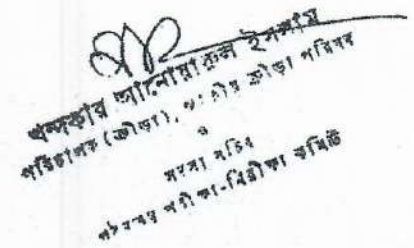 খন্দকার আনোয়ারুল ইসলাম
পরিচালক (ক্রীড়া), জাতীয় ক্রীড়া পরিষদ
ও
সদস্য সচিব
পরীক্ষা-নিরীক্ষা কমিটি